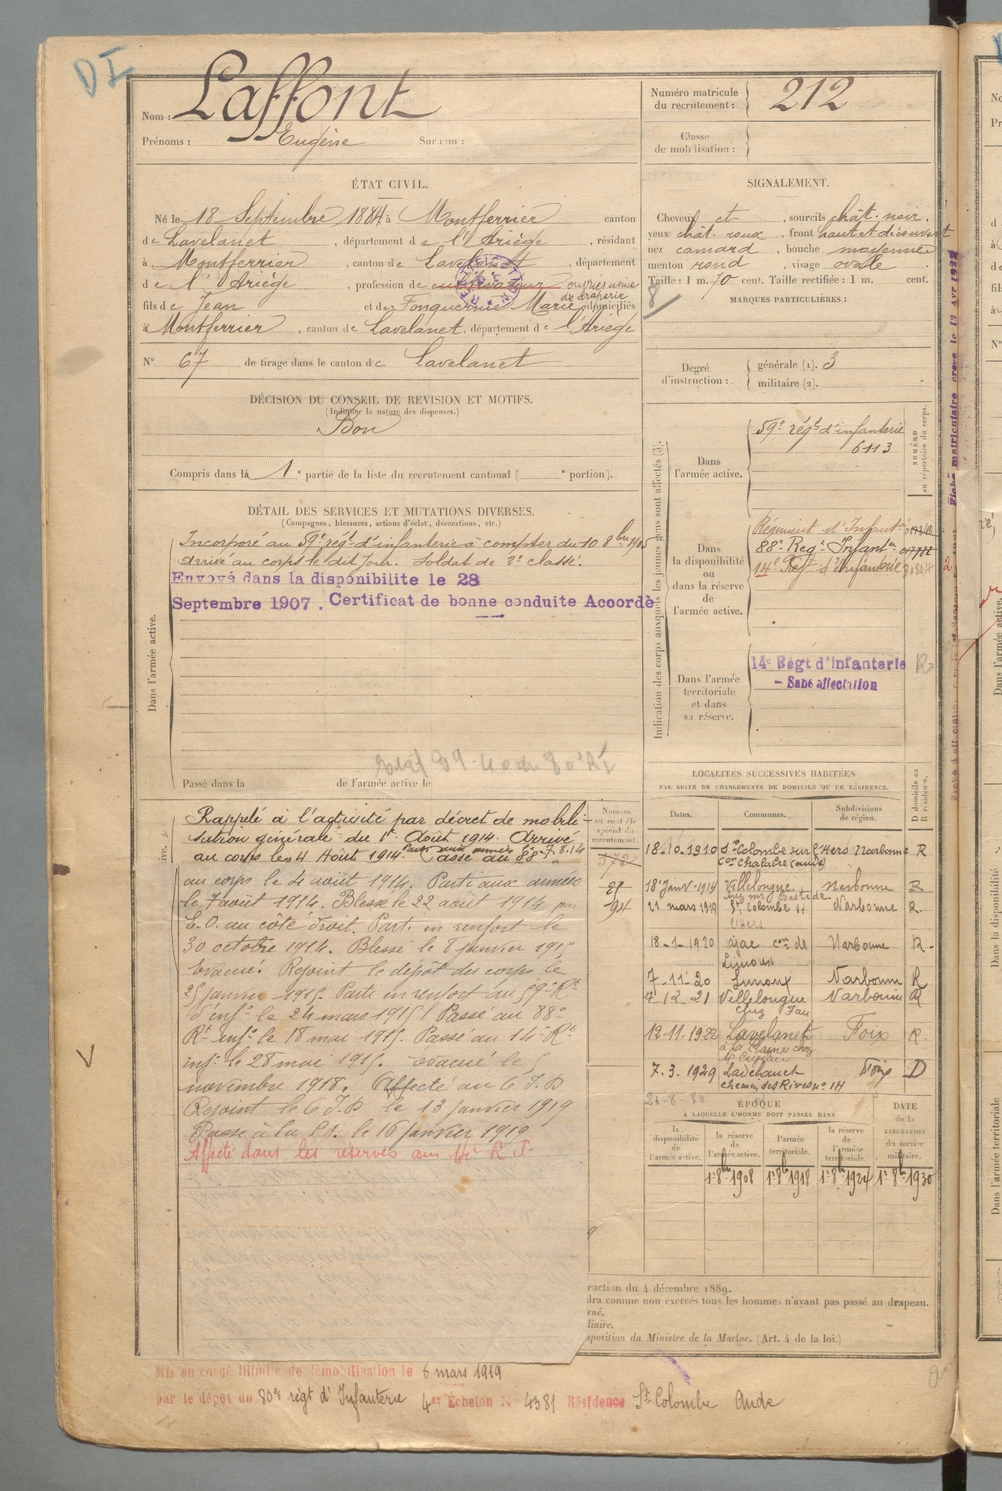 DI
Nom : Laffont
Prénoms : Eugène Surnom :
Numéro matricule du recrutement : 212
Classe de mobilisation :
ÉTAT CIVIL.
Né le 18 Septembre 1884 à Montferrier canton
de Lavelanet, département de l'Ariège, résidant
à Montferrier, canton de Lavelanet, département
de l'Ariège, profession de cultivateur ouvrier usine
de draperie
fils de Jean et de Marie, domiciliés
à Montferrier, canton de Lavelanet, département de l'Ariège
N° 67 de tirage dans le canton de Lavelanet
SIGNALEMENT.
Cheveux et, sourcils chât. noir,
yeux chât. roux, front haut et découvert
nez camard, bouche moyenne
menton rond, visage ovale
Taille : 1 m. 70 cent. Taille rectifiée : 1 m. cent.
MARQUES PARTICULIÈRES :
Degré d'instruction : générale (1). 3
militaire (2).
DÉCISION DU CONSEIL DE REVISION ET MOTIFS.
(Indiquer la nature des dispenses.)
Bon
Compris dans la 1e partie de la liste du recrutement cantonal ( e portion).
DÉTAIL DES SERVICES ET MUTATIONS DIVERSES.
(Campagnes, blessures, actions d'éclat, décorations, etc.)
Incorporé au 59e régt d'infanterie à compter du 10 8bre 1905
arrivé au corps le dit jour. Soldat de 2e classe.
Envoyé dans la disponibilité le 28
Septembre 1907. Certificat de bonne conduite Accordé
Dans l'armée active.
Passé dans la de l'armée active le
Indication des corps auxquels les jeunes gens sont affectés (3).
NUMÉRO au répertoire du corps.
Dans l'armée active.
59e régt d'infanterie
6113
Dans la disponibilité ou dans la réserve de l'armée active.
Régiment d'Infantie
88e Regt Infantie
14e Regt d'Infanterie
Dans l'armée territoriale et dans sa réserve.
14e Régt d'Infanterie
- Sans affectation
Rappelé à l'activité par décret de mobili-
sation générale du 1er Août 1914. Arrivé
au corps le 4 Août 1914. Parti aux armées le 7.8.14
Passé au 88e
au corps le 4 août 1914. Parti aux armées
le 7 août 1914. Blessé le 22 août 1914 par
E.O. au côté droit. Parti en renfort le
30 octobre 1914. Blessé le 8 janvier 1915
Evacué. Rejoint le dépôt des corps le
25 janvier 1915. Parti en renfort au 59e Rt
d'infie le 24 mars 1915. Passé au 88e
Rt infie le 18 mai 1915. Passé au 14e Rt
infie le 28 mai 1915. Evacué le 5
novembre 1918. Affecté au 6 I.D
Rejoint le 6 I.D le 13 janvier 1919
Passé à la le 16 janvier 1919
Affecté dans les réserves au
LOCALITÉS SUCCESSIVES HABITÉES
PAR SUITE DE CHANGEMENTS DE DOMICILE OU DE RÉSIDENCE.
Dates. Communes. Subdivisions de région. D domicile ou R résidence.
18-10-1910 Ste Colombe sur l'Hers Narbonne R
Con Chalabre (aude)
18 Janv-1914 Villelongue Narbonne R
21 mars 1919 Ste Colombe Narbonne R.
18-1-1920 ajac con de Narbonne R.
Limoux
7-11-20 Limoux Narbonne R
4-12-21 Villelongue Narbonne R
12-11-1922 Lavelanet Foix R.
7.3.1929 Lavelanet Foix D
chemin des Rives n° 14
ÉPOQUE
À LAQUELLE L'HOMME DOIT PASSER DANS
DATE de la LIBÉRATION du service militaire.
la disponibilité de l'armée active. la réserve de l'armée active. l'armée territoriale. la réserve de l'armée territoriale.
1er 8bre 1908 1er 8bre 1918 1er 8bre 1924 1er 8bre 1930
ruction du 4 décembre 1889.
dra comme non exercés tous les hommes n'ayant pas passé au drapeau.
sposition du Ministre de la Marine. (Art. 4 de la loi.)
Mis en congé illimité de démobilisation le 6 mars 1919
par le dépôt du 80e régt d'Infanterie 4er Échelon No 4381 Résidence Ste Colombe Aude